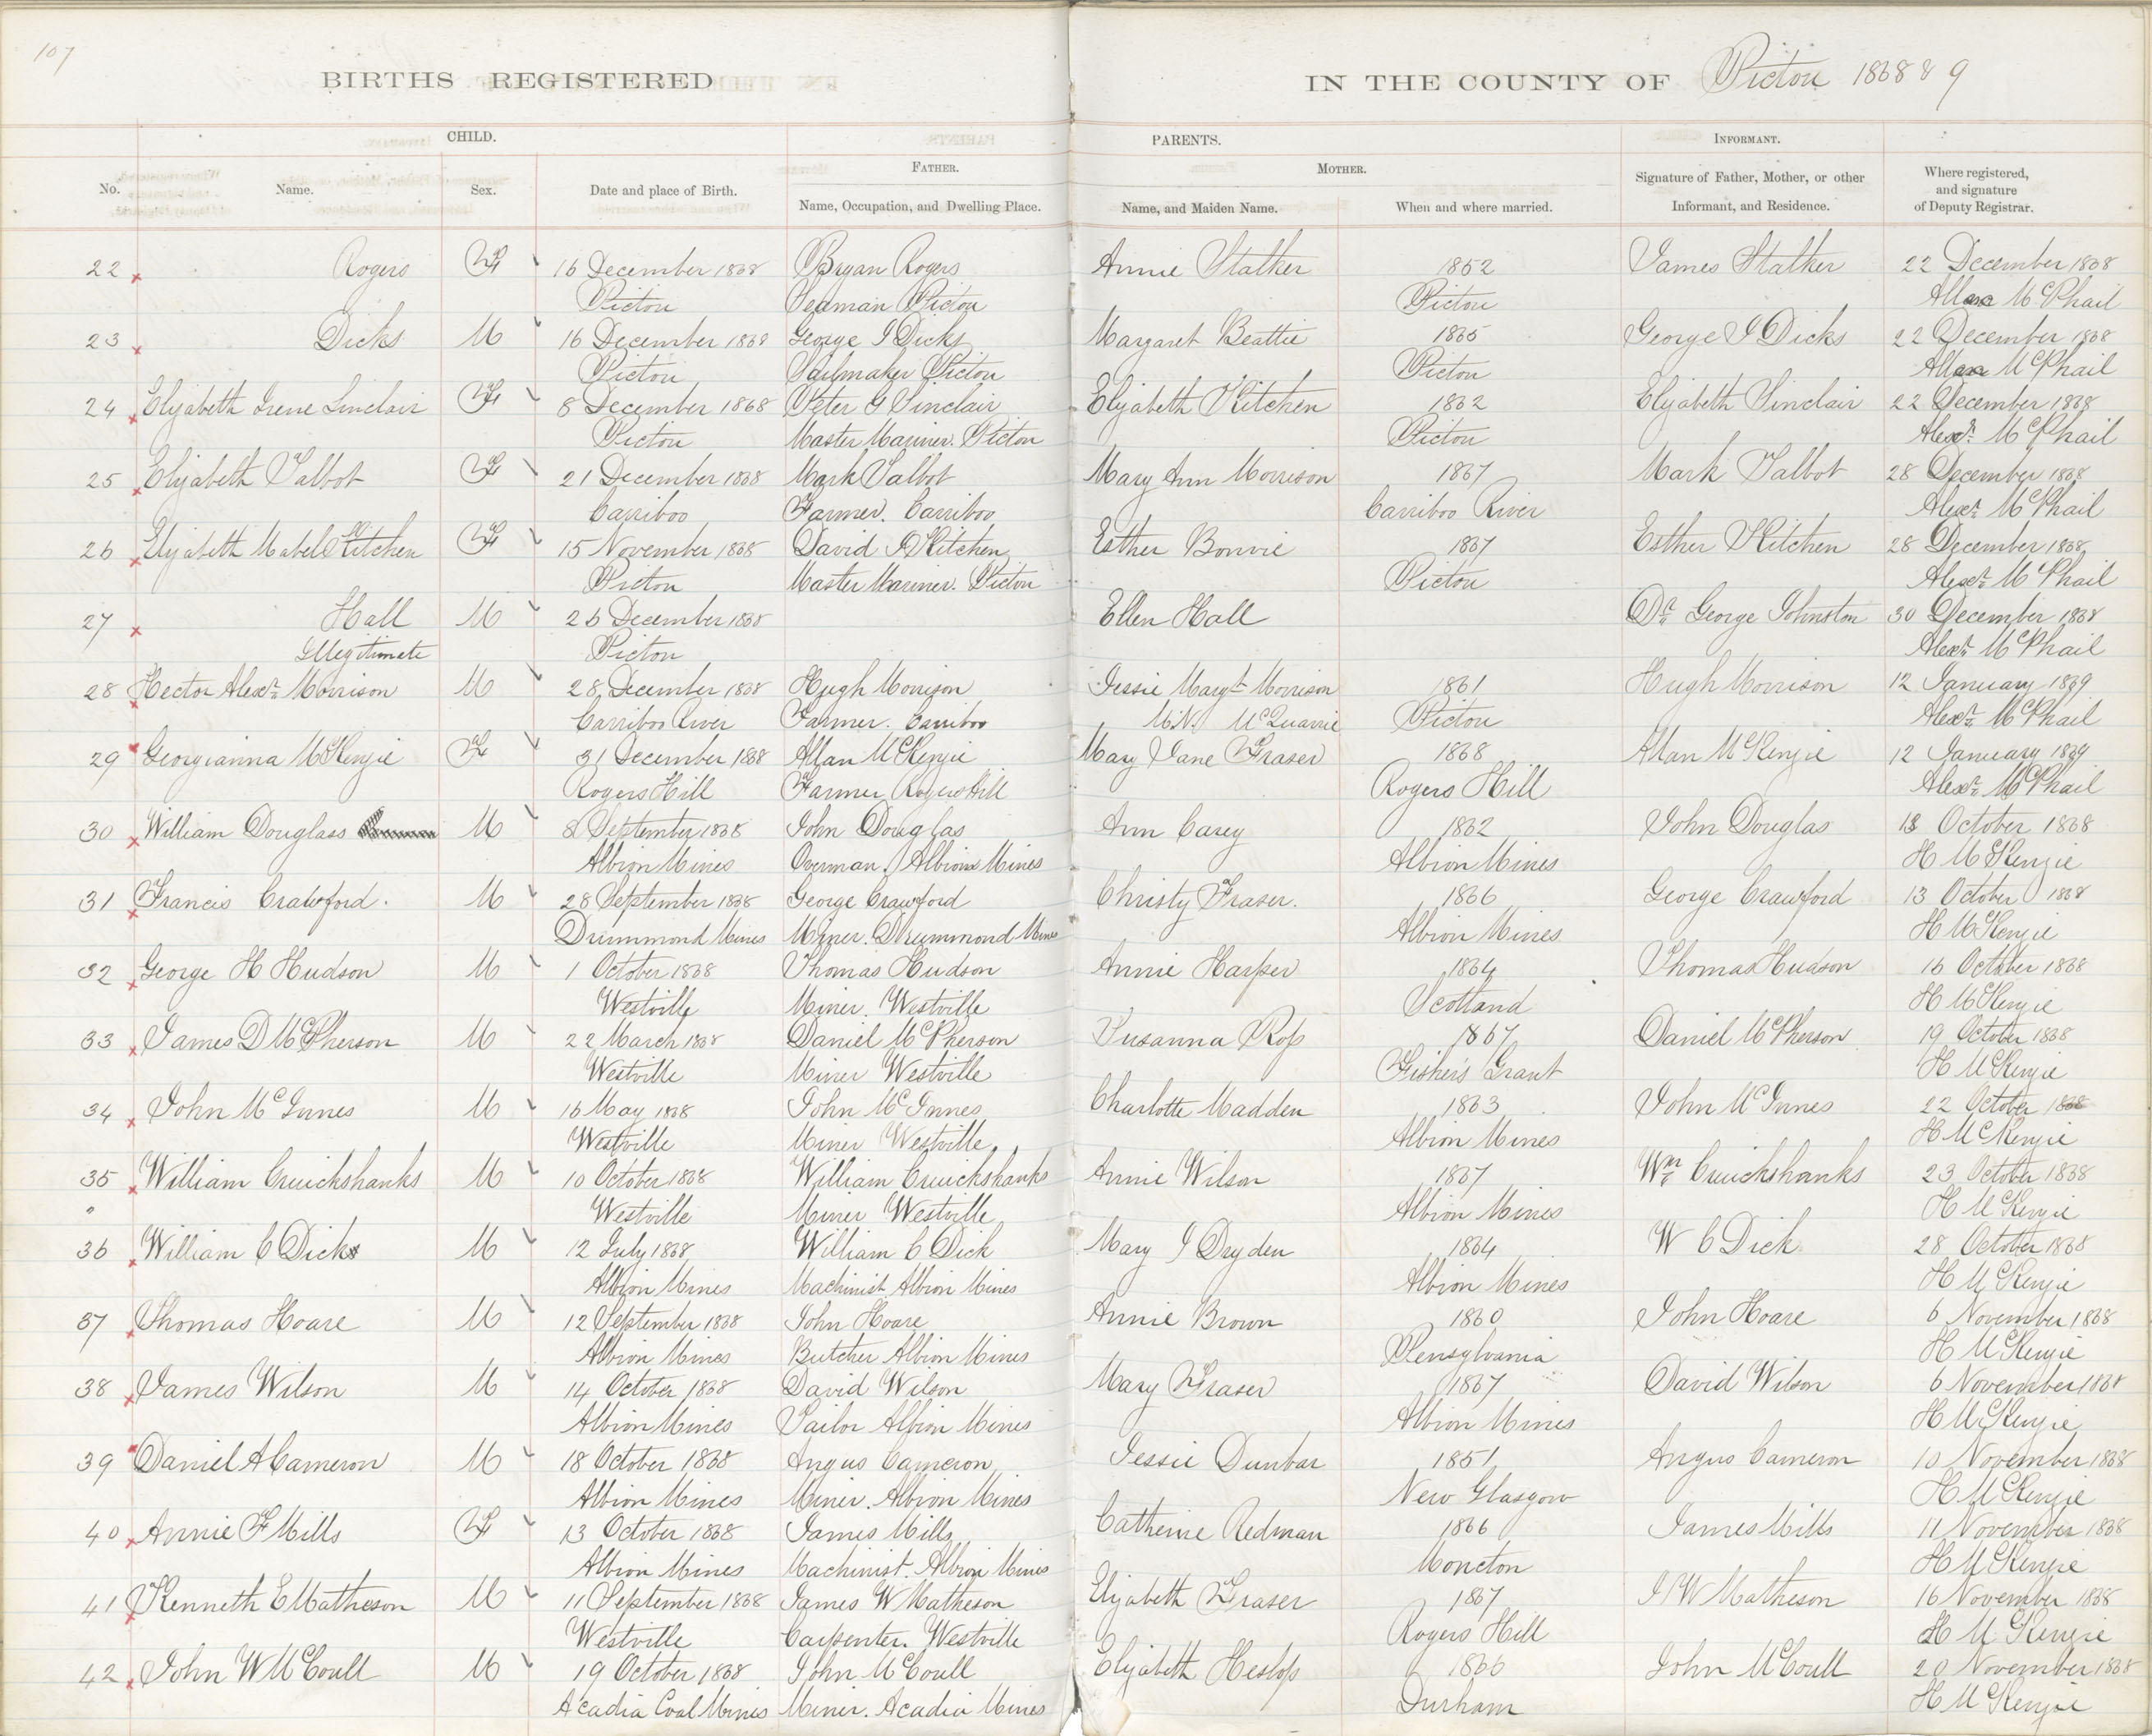 107
BIRTHS REGISTERED IN THE COUNTY OF Pictou 1868 & 9
CHILD. PARENTS. INFORMANT.
FATHER. MOTHER.
No. Name. Sex. Date and place of Birth. Name, Occupation, and Dwelling Place. Name, and Maiden Name. When and where married. Signature of Father, Mother, or other Informant, and Residence. Where registered, and signature of Deputy Registrar.
22 Rogers F 16 December 1868 Bryan Rogers Annie Stalker 1862 James Stalker 22 December 1868
Pictou Seaman Pictou Pictou McPhail
23 Dicks M 16 December 1868 George I Dicks Margaret Beattie 1865 George I Dicks 22 December 1868
Pictou Sailmaker Pictou Pictou McPhail
24 Elizabeth Irene Sinclair F 8 December 1868 Peter G Sinclair Elizabeth Kitchen 1862 Elizabeth Sinclair 22 December 1868
Pictou Master Mariner. Pictou Pictou Alexr. McPhail
25 Elizabeth Talbot F 21 December 1868 Mark Talbot Mary Ann Morrison 1867 Mark Talbot 28 December 1868
Carriboo Farmer. Carriboo Carriboo River Alexr. McPhail
26 Elizabeth Mabel Kitchen F 15 November 1868 David Kitchen Esther Bonvie 1867 Esther Kitchen 28 December 1868
Pictou Master Mariner. Pictou Pictou Alexr. McPhail
27 Hall M 26 December 1868 Ellen Hall Dr. George Johnston 30 December 1868
Illegitimate Pictou Alexr. McPhail
28 Hector Alexr. Morrison M 28 December 1868 Hugh Morrison Jessie Margt. Morrison 1861 Hugh Morrison 12 January 1869
Carriboo River Farmer. Carriboo M.N. McQuarrie Pictou Alexr. McPhail
29 Georgianna McKenzie F 31 December 1868 Allan McKenzie Mary Jane Fraser 1868 Allan McKenzie 12 January 1869
Rogers Hill Farmer Rogers Hill Rogers Hill Alexr. McPhail
30 William Douglass M 8 September 1868 John Douglas Ann Carey 1862 John Douglas 13 October 1868
Albion Mines Overman. Albion Mines Albion Mines H McKenzie
31 Francis Crawford. M 28 September 1868 George Crawford Christy Fraser. 1866 George Crawford 13 October 1868
Drummond Mines Miner. Drummond Mines Albion Mines H McKenzie
32 George H Hudson M 1 October 1868 Thomas Hudson Annie Harper 1864 Thomas Hudson 16 October 1868
Westville Miner. Westville Scotland H McKenzie
33 James D McPherson M 22 March 1868 Daniel McPherson Susanna Ross 1867 Daniel McPherson 19 October 1868
Westville Miner Westville Fishers Grant H McKenzie
34 John McInnes M 16 May 1868 John McInnes Charlotte Madden 1863 John McInnes 22 October 1868
Westville Miner Westville Albion Mines H McKenzie
35 William Cruickshanks M 10 October 1868 William Cruickshanks Annie Wilson 1867 Wm. Cruickshanks 23 October 1868
Westville Miner Westville Albion Mines H McKenzie
36 William C Dick M 12 July 1868 William C Dick Mary I Dryden 1864 W C Dick 28 October 1868
Albion Mines Machinist Albion Mines Albion Mines H McKenzie
37 Thomas Hoare M 12 September 1868 John Hoare Annie Brown 1860 John Hoare 6 November 1868
Albion Mines Butcher Albion Mines Pensylvania H McKenzie
38 James Wilson M 14 October 1868 David Wilson Mary Fraser 1867 David Wilson 6 November 1868
Albion Mines Tailor Albion Mines Albion Mines H McKenzie
39 Daniel A Cameron M 18 October 1868 Angus Cameron Jessie Dunbar 1851 Angus Cameron 10 November 1868
Albion Mines Miner. Albion Mines New Glasgow H McKenzie
40 Annie F Mills F 13 October 1868 James Mills Catherine Redman 1866 James Mills 11 November 1868
Albion Mines Machinist. Albion Mines Moncton H McKenzie
41 Kenneth E Matheson M 11 September 1868 James W Matheson Elizabeth Fraser 1867 J W Matheson 16 November 1868
Westville Carpenter. Westville Rogers Hill H McKenzie
42 John W McCoull M 19 October 1868 John McCoull Elizabeth Heslop 1866 John McCoull 20 November 1868
Acadia Coal Mines Miner. Acadia Mines Durham H McKenzie